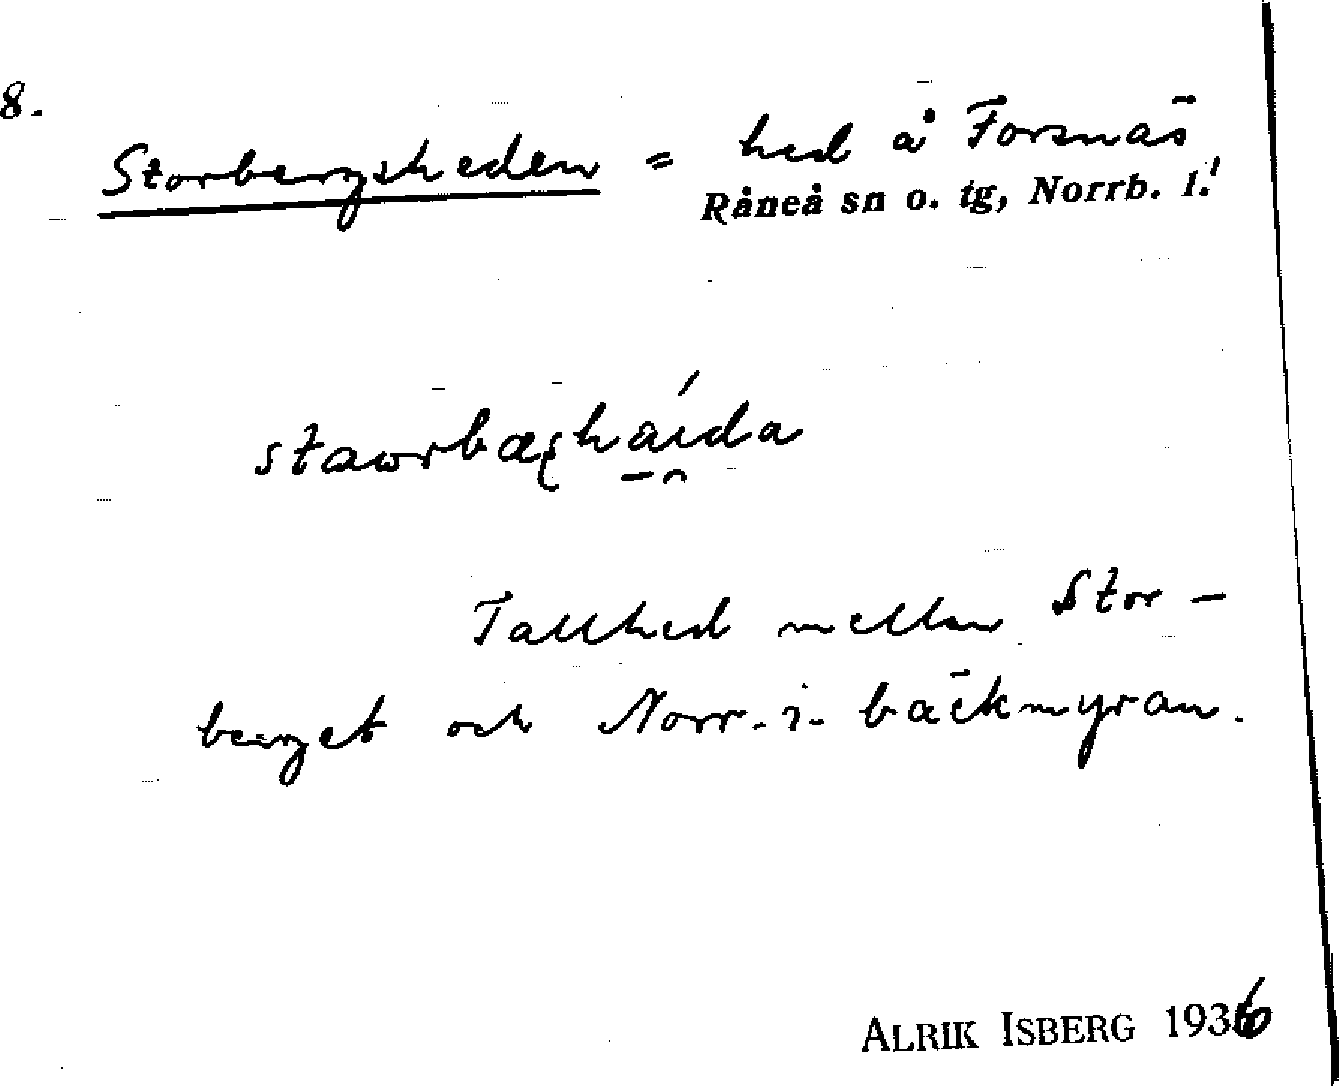 8.
Storbergsheden = hed å Forsnäs
Råneå sn o. tg, Norrb. l.
stawrbæʂháida
Tallhed mellan Stor-
berget och Norr-i-bäckmyran.
ALRIK ISBERG 1936